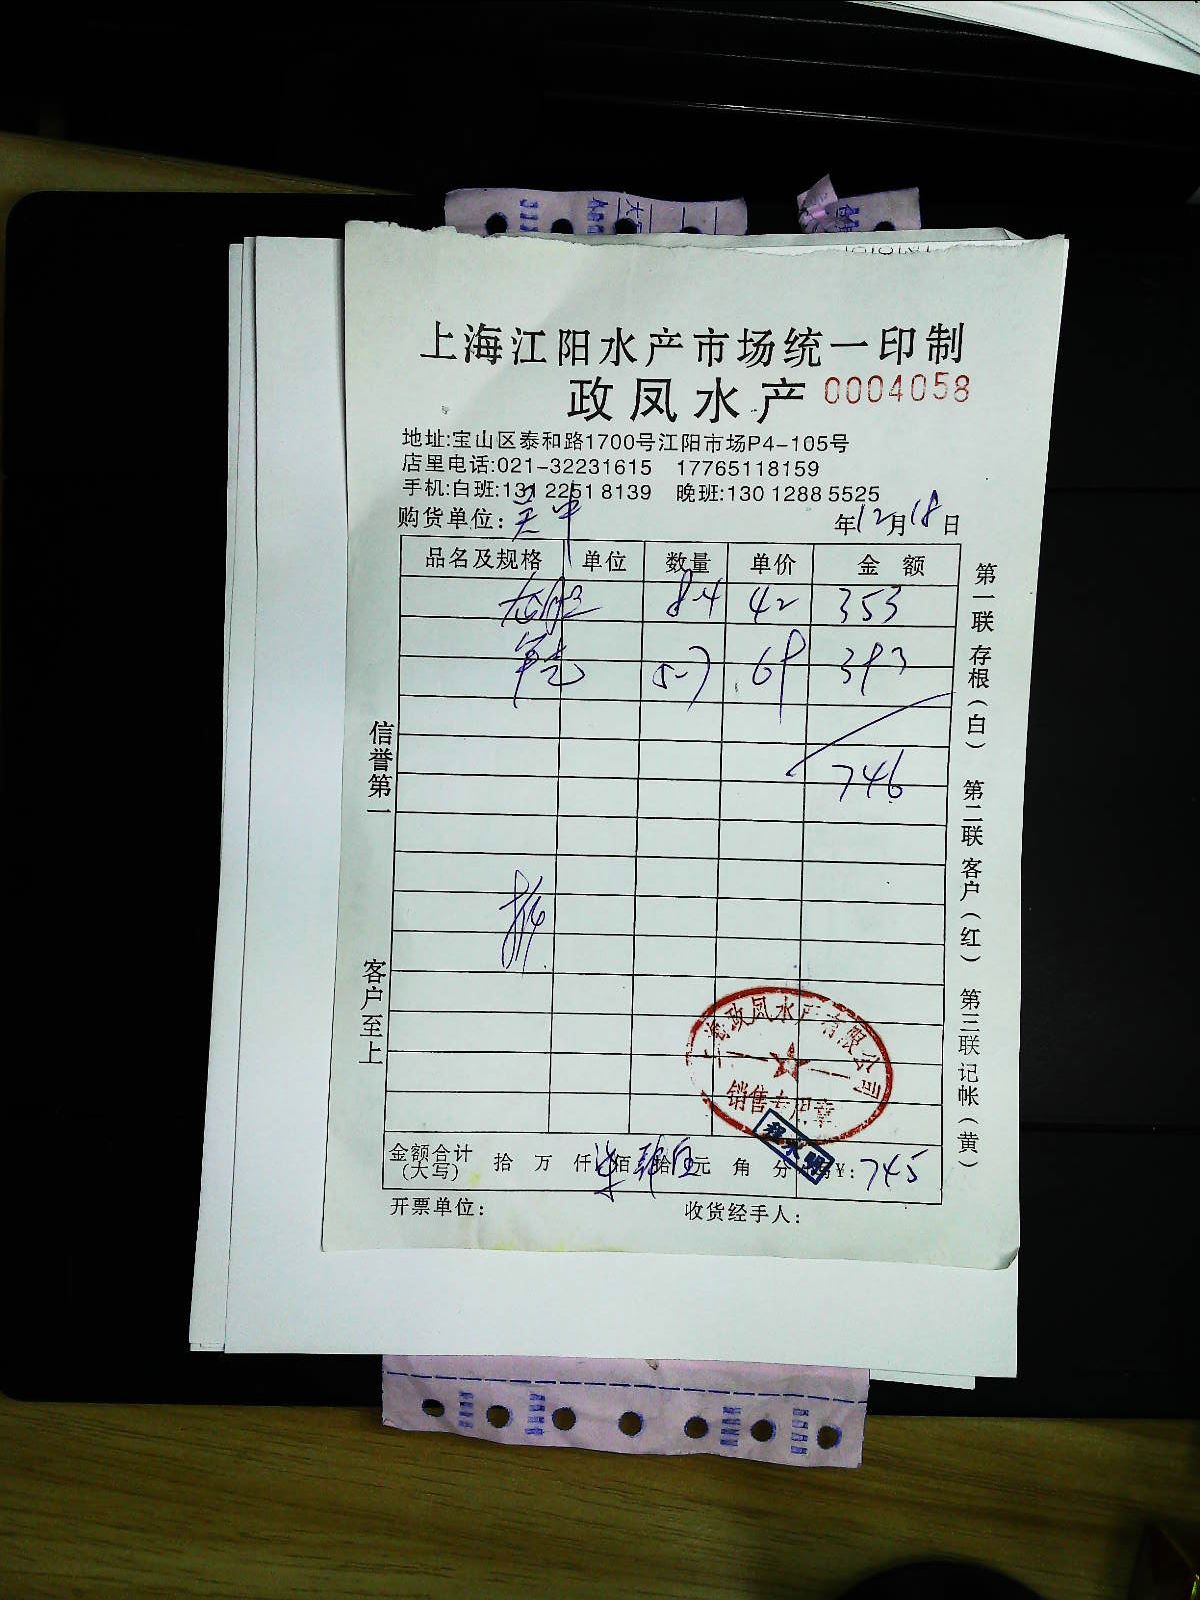 上海江阳水产市场统一印制
政凤水产 0004058
地址:宝山区泰和路1700号江阳市场P4-105号
店里电话:021-32231615 17765118159
手机:白班:131 2251 8139 晚班:130 1288 5525
购货单位: 年12月18日
品名及规格 单位 数量 单价 金额
8.4 42 353
5-7 69 393
746
信誉第一
客户至上
第一联存根(白) 第二联客户(红) 第三联记帐(黄)
上海政凤水产有限公司
销售专用章
金额合计 拾 万 仟 柒佰 拾 元 角 分 ¥:745
(大写)
开票单位: 收货经手人: